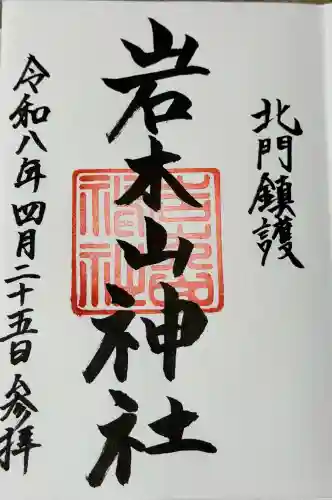 北門鎮護
岩木山神社
令和八年四月二十五日参拝